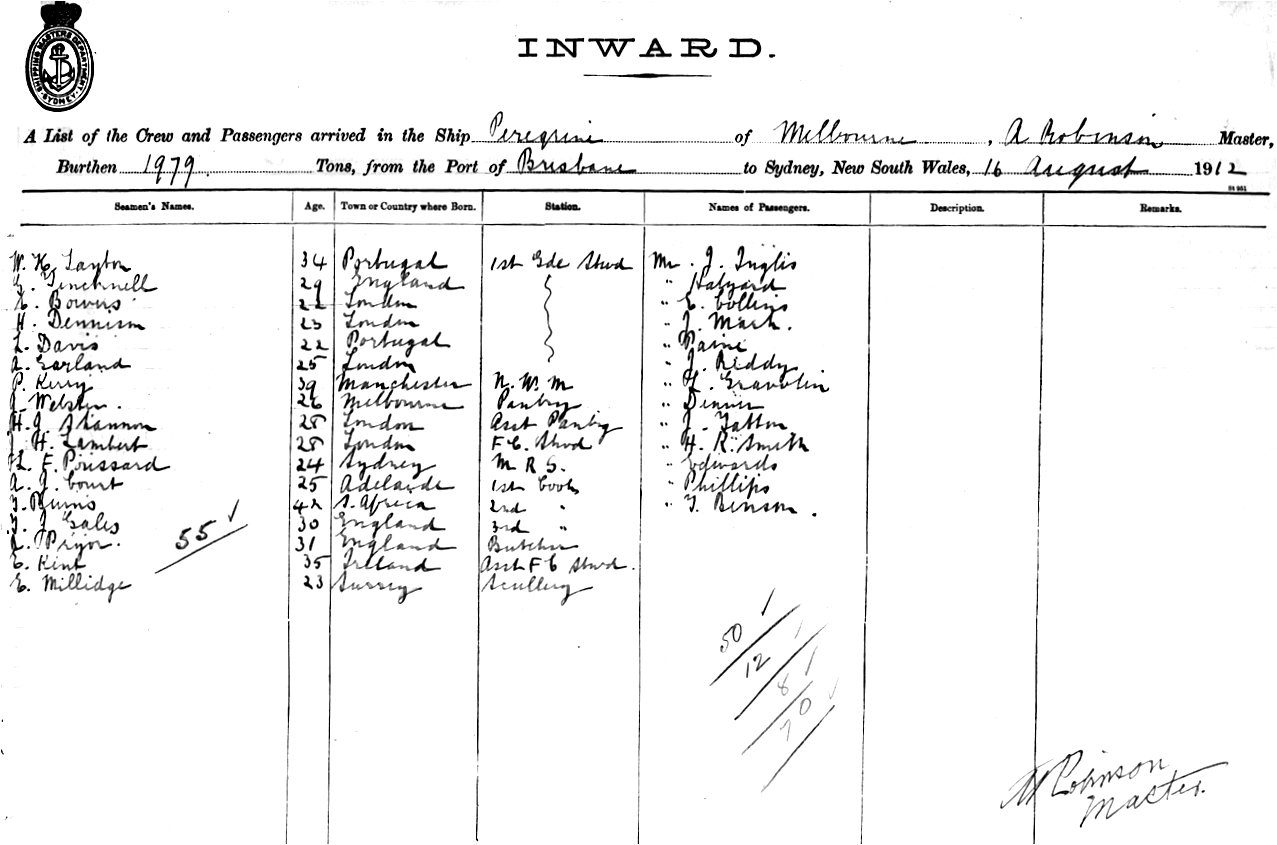 SHIPPING MASTERS DEPARTMENT SYDNEY
INWARD.
A List of the Crew and Passengers arrived in the Ship Peregrine of Melbourne, A Robinson Master,
Burthen 1979 Tons, from the Port of Brisbane to Sydney, New South Wales, 16 August 1912
Seamen's Names. Age. Town or Country where Born. Station. Names of Passengers. Description. Remarks.
W. H. Layton 34 Portugal 1st Gde Stwd Mr. J. Inglis
G. Tincknell 29 England " Halyard
Bowers 22 London " E. Collins
H. Dennison 23 London " J. Mark.
L. Davis 22 Portugal " Paine
A. Garland 25 London " J. Reddy
P. Kerry 39 Manchester N. W. M "
26 Melbourne Pantry " Denver
H. J. Shannon 28 London Asst Pantry " J. Tatton
J. H. Lambert 28 London F C. Stwd " H. R. Smith
L. F. Poussard 24 Sydney M R S. " Edwards
A. J. Court 25 Adelaide 1st Cook " Phillips
Burns 42 S. Africa 2nd " " T. Benson.
J. Eales 30 England 3rd "
Pryor. 31 England Butcher
55
E. Kent 35 Ireland Asst F C Stwd.
E. Millidge 23 Surrey Scullery
50
12
8
70
A Robinson
Master.